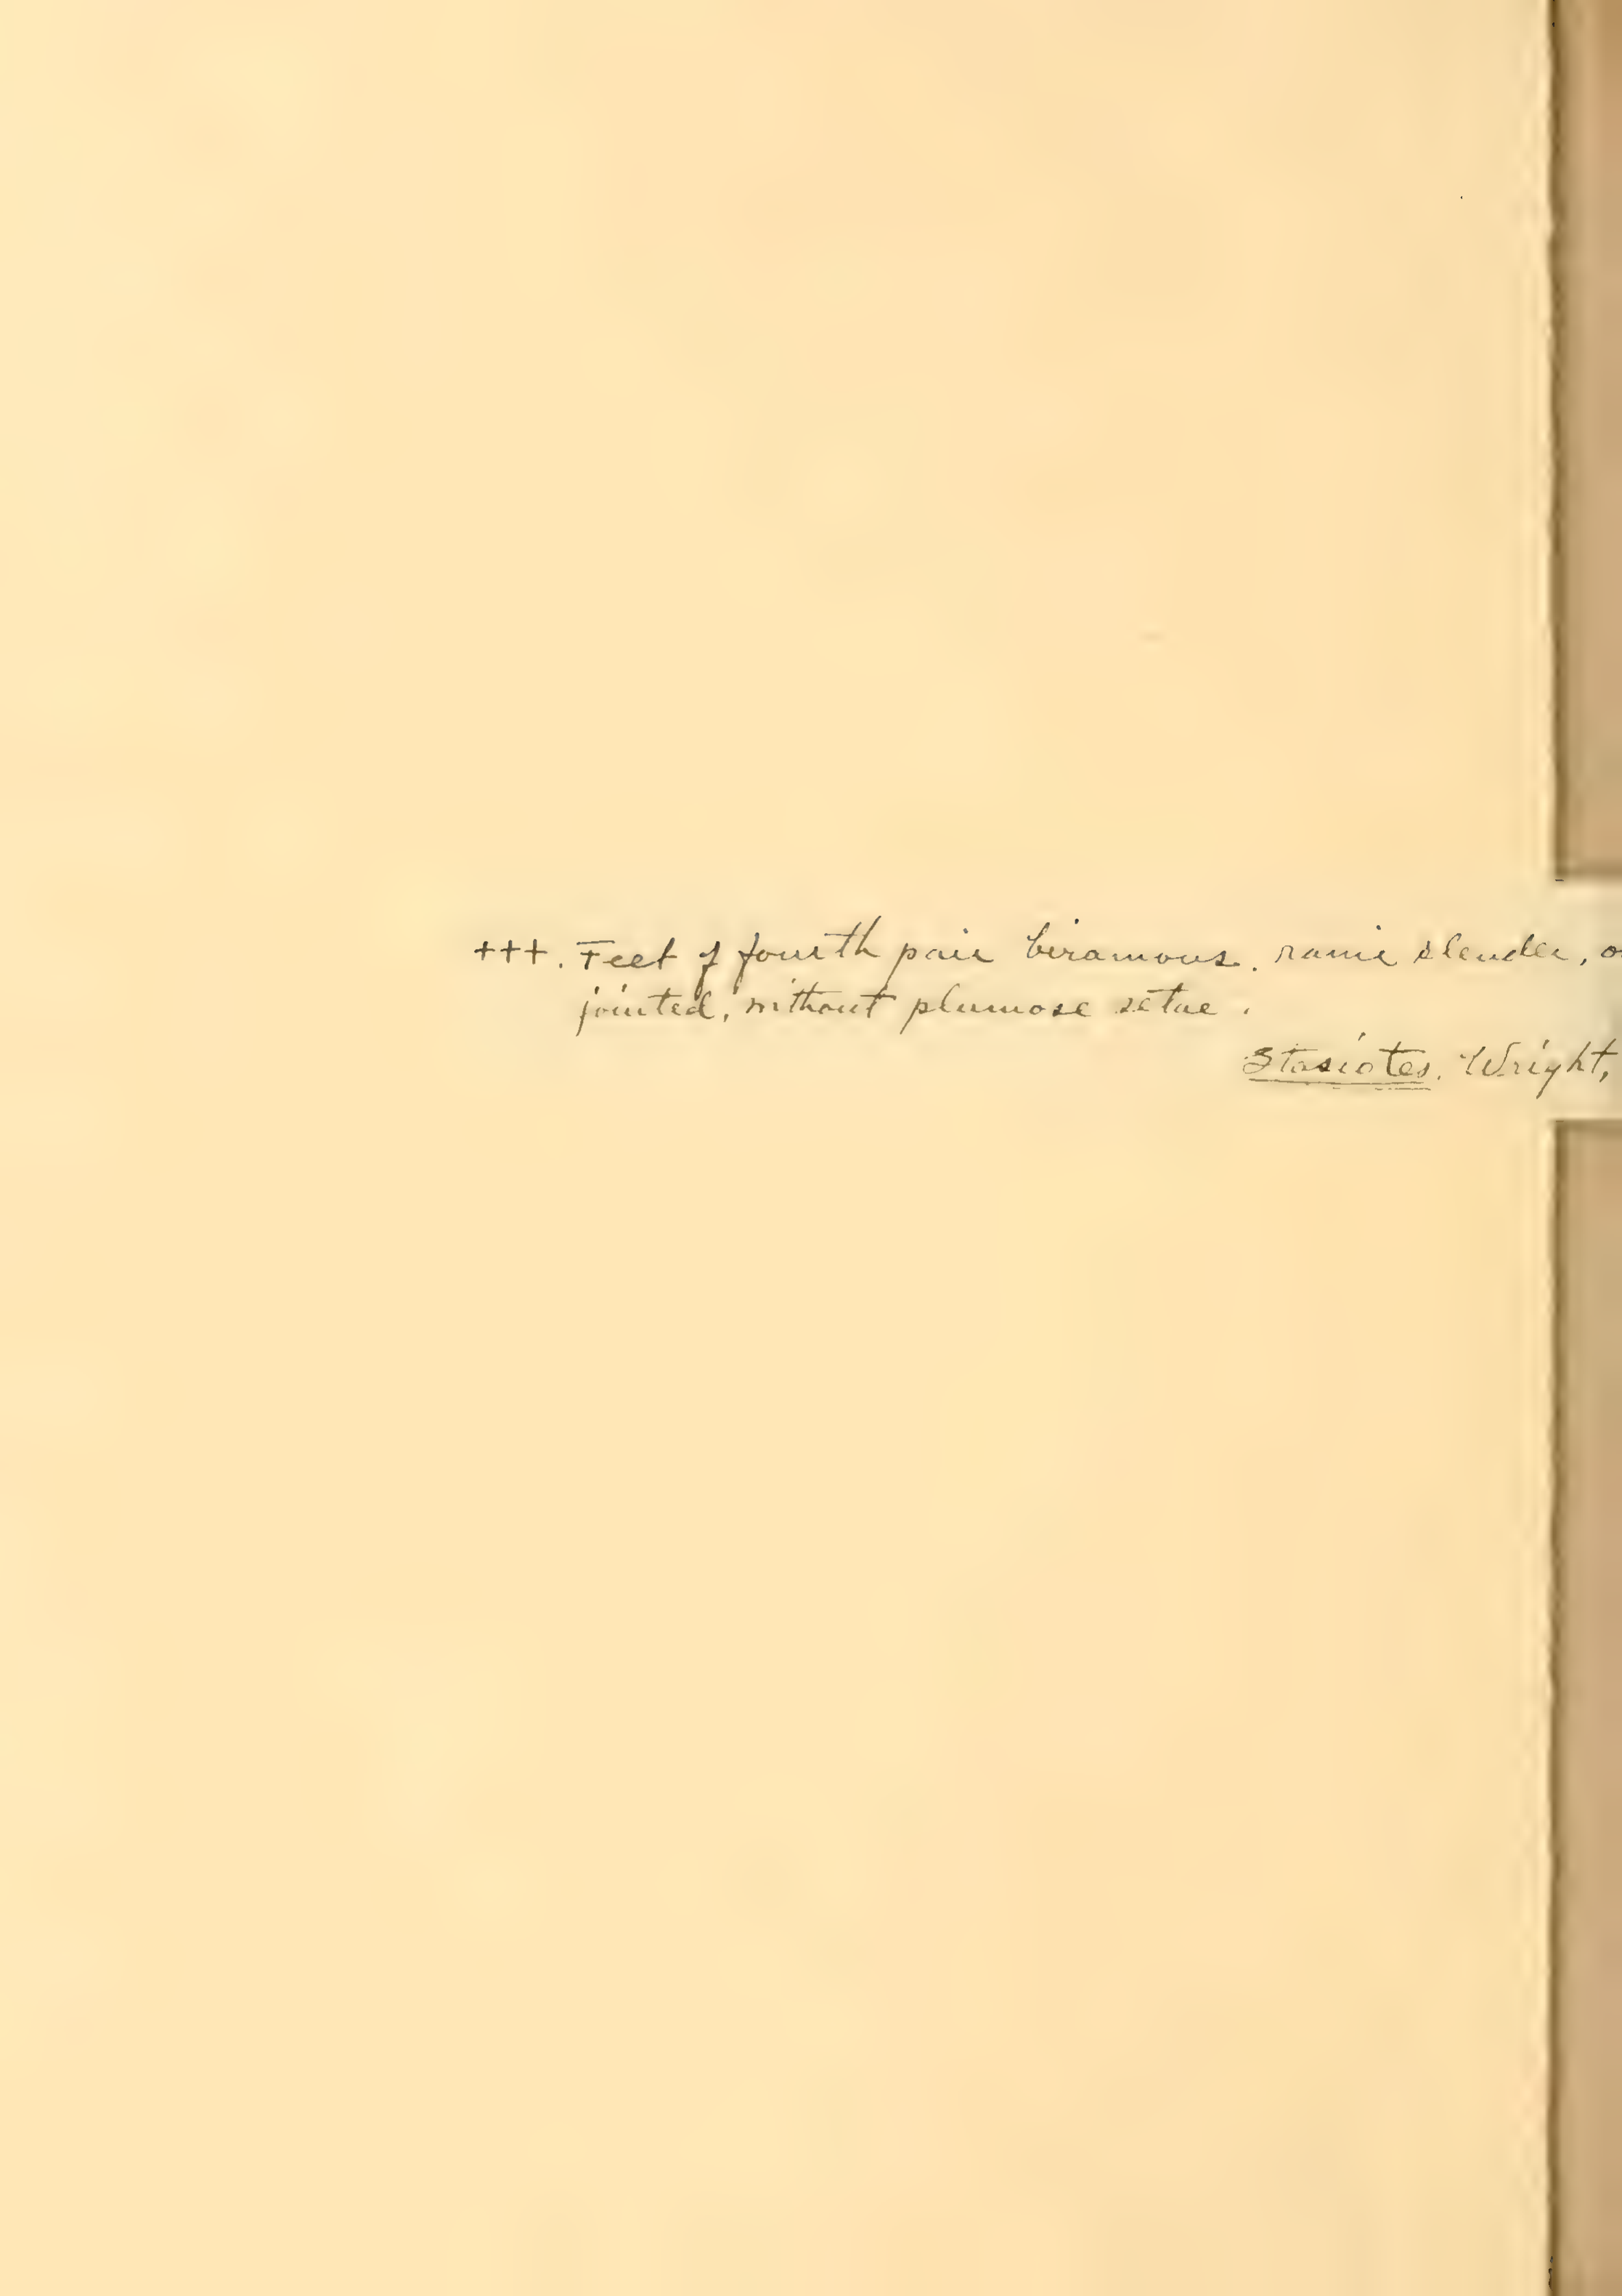 +++. Feet of fourth pair biramous. rami slender,
jointed, without plumose setae.
Stasiotes. Wright,